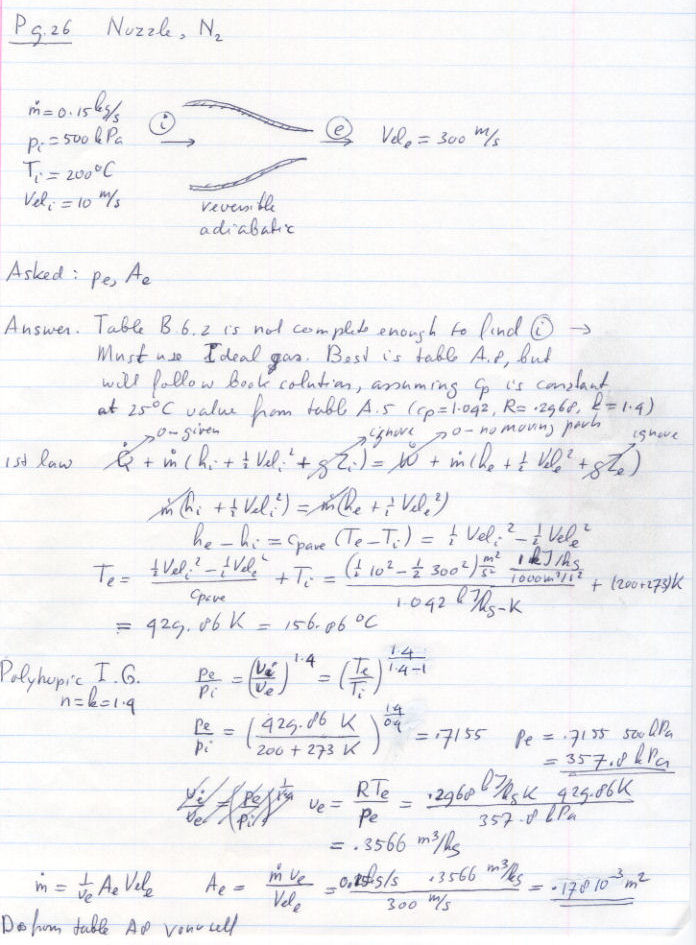 Pg.26 Nozzle, N₂
ṁ = 0.15 kg/s
pᵢ = 500 kPa
Tᵢ = 200°C
Velᵢ = 10 m/s
(i) → (e) → Velₑ = 300 m/s
reversible
adiabatic
Asked: pₑ, Aₑ
Answer. Table B.6.2 is not complete enough to find (i) →
Must use Ideal gas. Best is table A.8, but
will follow book solution, assuming cp is constant
at 25°C value from table A.5 (cp=1.042, R=.2968, k=1.4)
0-given ignore 0-no moving parts ignore
1st law Q̇ + ṁ(hᵢ + ½ Velᵢ² + gZᵢ) = Ẇ + ṁ(hₑ + ½ Velₑ² + gZₑ)
ṁ(hᵢ + ½ Velᵢ²) = ṁ(hₑ + ½ Velₑ²)
hₑ - hᵢ = cpave (Tₑ - Tᵢ) = ½ Velᵢ² - ½ Velₑ²
Tₑ = (½ Velᵢ² - ½ Velₑ²)/cpave + Tᵢ = (½ 10² - ½ 300²) m²/s² 1 kJ/kg / 1000 m²/s² / 1.042 kJ/kg-K + (200+273)K
= 429.86 K = 156.86 °C
Polytropic I.G. pₑ/pᵢ = (vᵢ/vₑ)^1.4 = (Tₑ/Tᵢ)^(1.4/(1.4-1))
n=k=1.4
pₑ/pᵢ = (429.86 K / (200 + 273 K))^(1.4/0.4) = .7155 pₑ = .7155 500 kPa
= 357.8 kPa
vᵢ/vₑ = (pₑ/pᵢ)^(1/1.4) vₑ = RTₑ/pₑ = .2968 kJ/kg K 429.86K / 357.8 kPa
= .3566 m³/kg
ṁ = 1/vₑ Aₑ Velₑ Aₑ = ṁ vₑ / Velₑ = 0.15 kg/s .3566 m³/kg / 300 m/s = .178 10⁻³ m²
Do from table A8 yourself